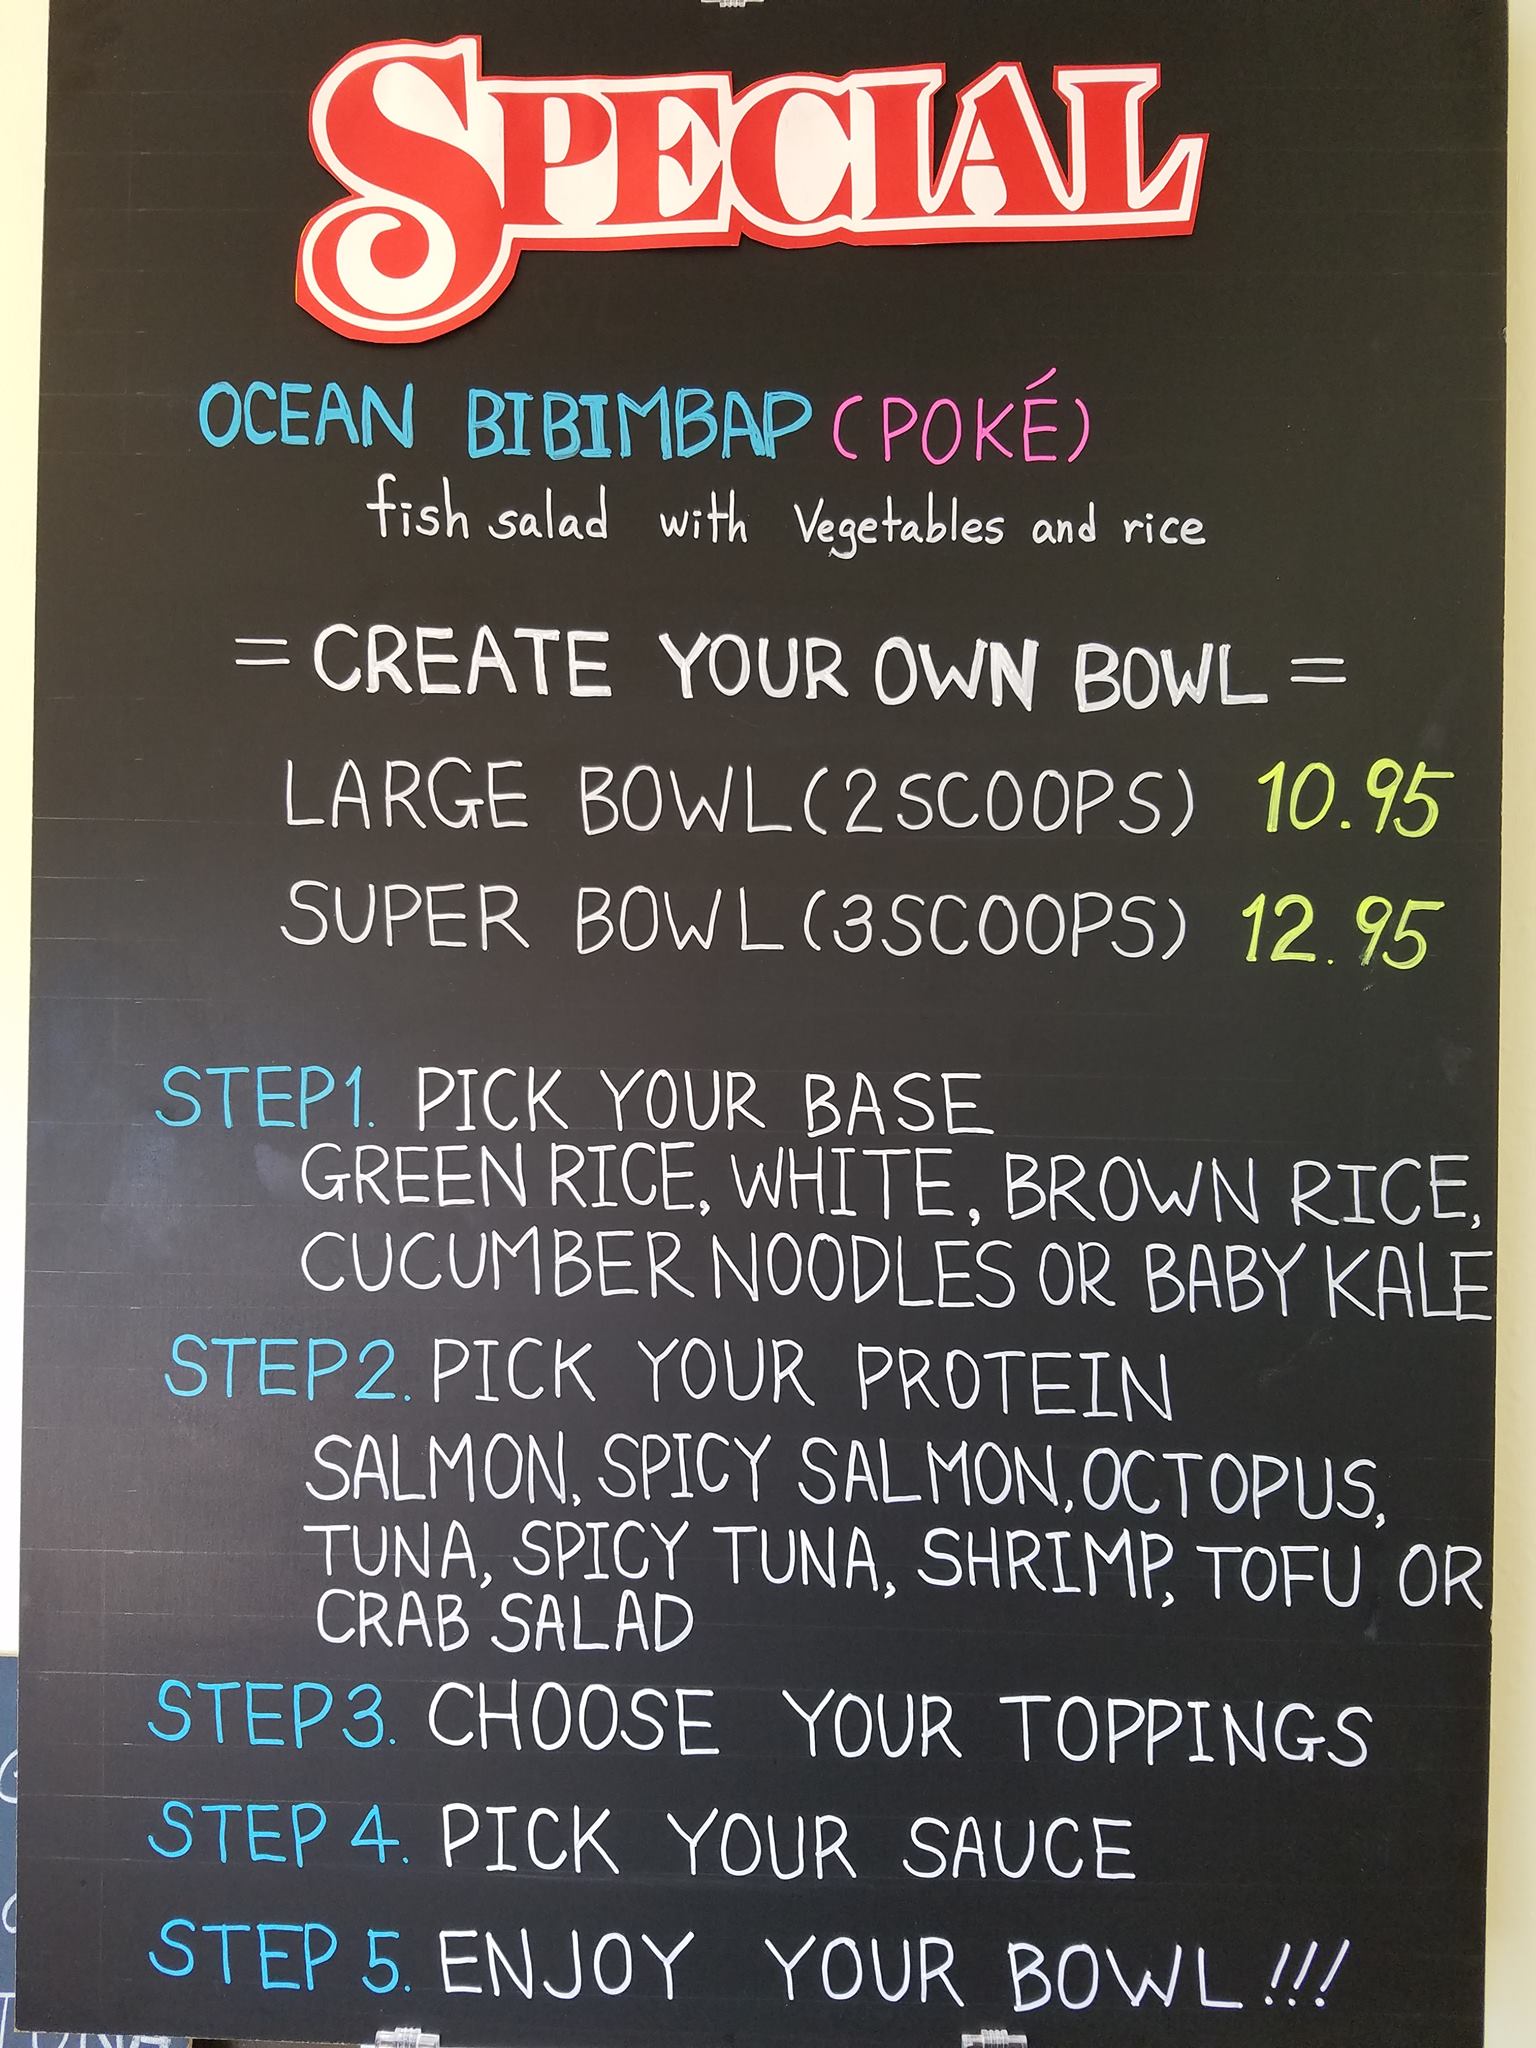 SPECIAL
OCEAN BIBIMBAP (POKÉ)
fish salad with Vegetables and rice
= CREATE YOUR OWN BOWL =
LARGE BOWL (2 SCOOPS) 10.95
SUPER BOWL (3 SCOOPS) 12.95
STEP1. PICK YOUR BASE
GREEN RICE, WHITE, BROWN RICE,
CUCUMBER NOODLES OR BABY KALE
STEP2. PICK YOUR PROTEIN
SALMON, SPICY SALMON, OCTOPUS,
TUNA, SPICY TUNA, SHRIMP, TOFU OR
CRAB SALAD
STEP3. CHOOSE YOUR TOPPINGS
STEP 4. PICK YOUR SAUCE
STEP 5. ENJOY YOUR BOWL!!!